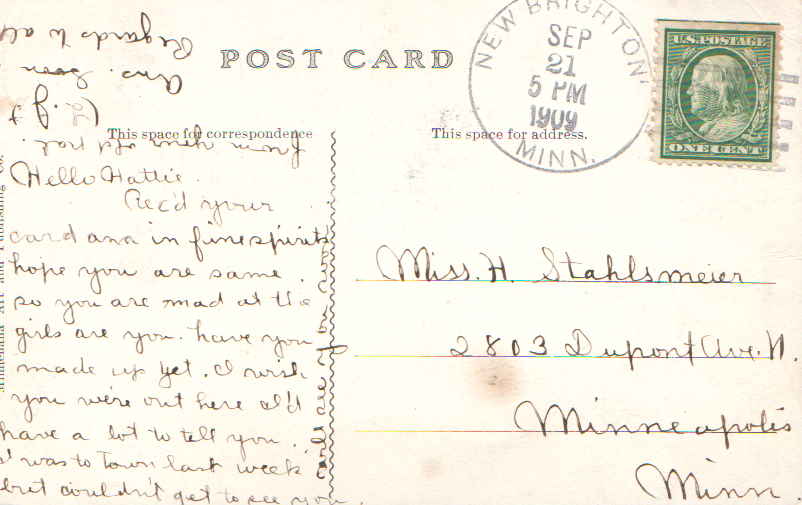 POST CARD
NEW BRIGHTON
SEP
21
5 PM
1909
MINN.
U.S. POSTAGE
ONE CENT
This space for correspondence
This space for address.
Hello Hattie.
Rec'd your
card and in fine spirits
hope you are same.
so you are mad at the
girls are you. have you
made up yet. I wish
you were out here I'd
have a lot to tell you.
I was to Town last week
but couldn't get to see you.
From your old pal.
Ans. Soon
Regards to all
Miss. H. Stahlsmeier
2803 Dupont Ave. N.
Minneapolis
Minn.